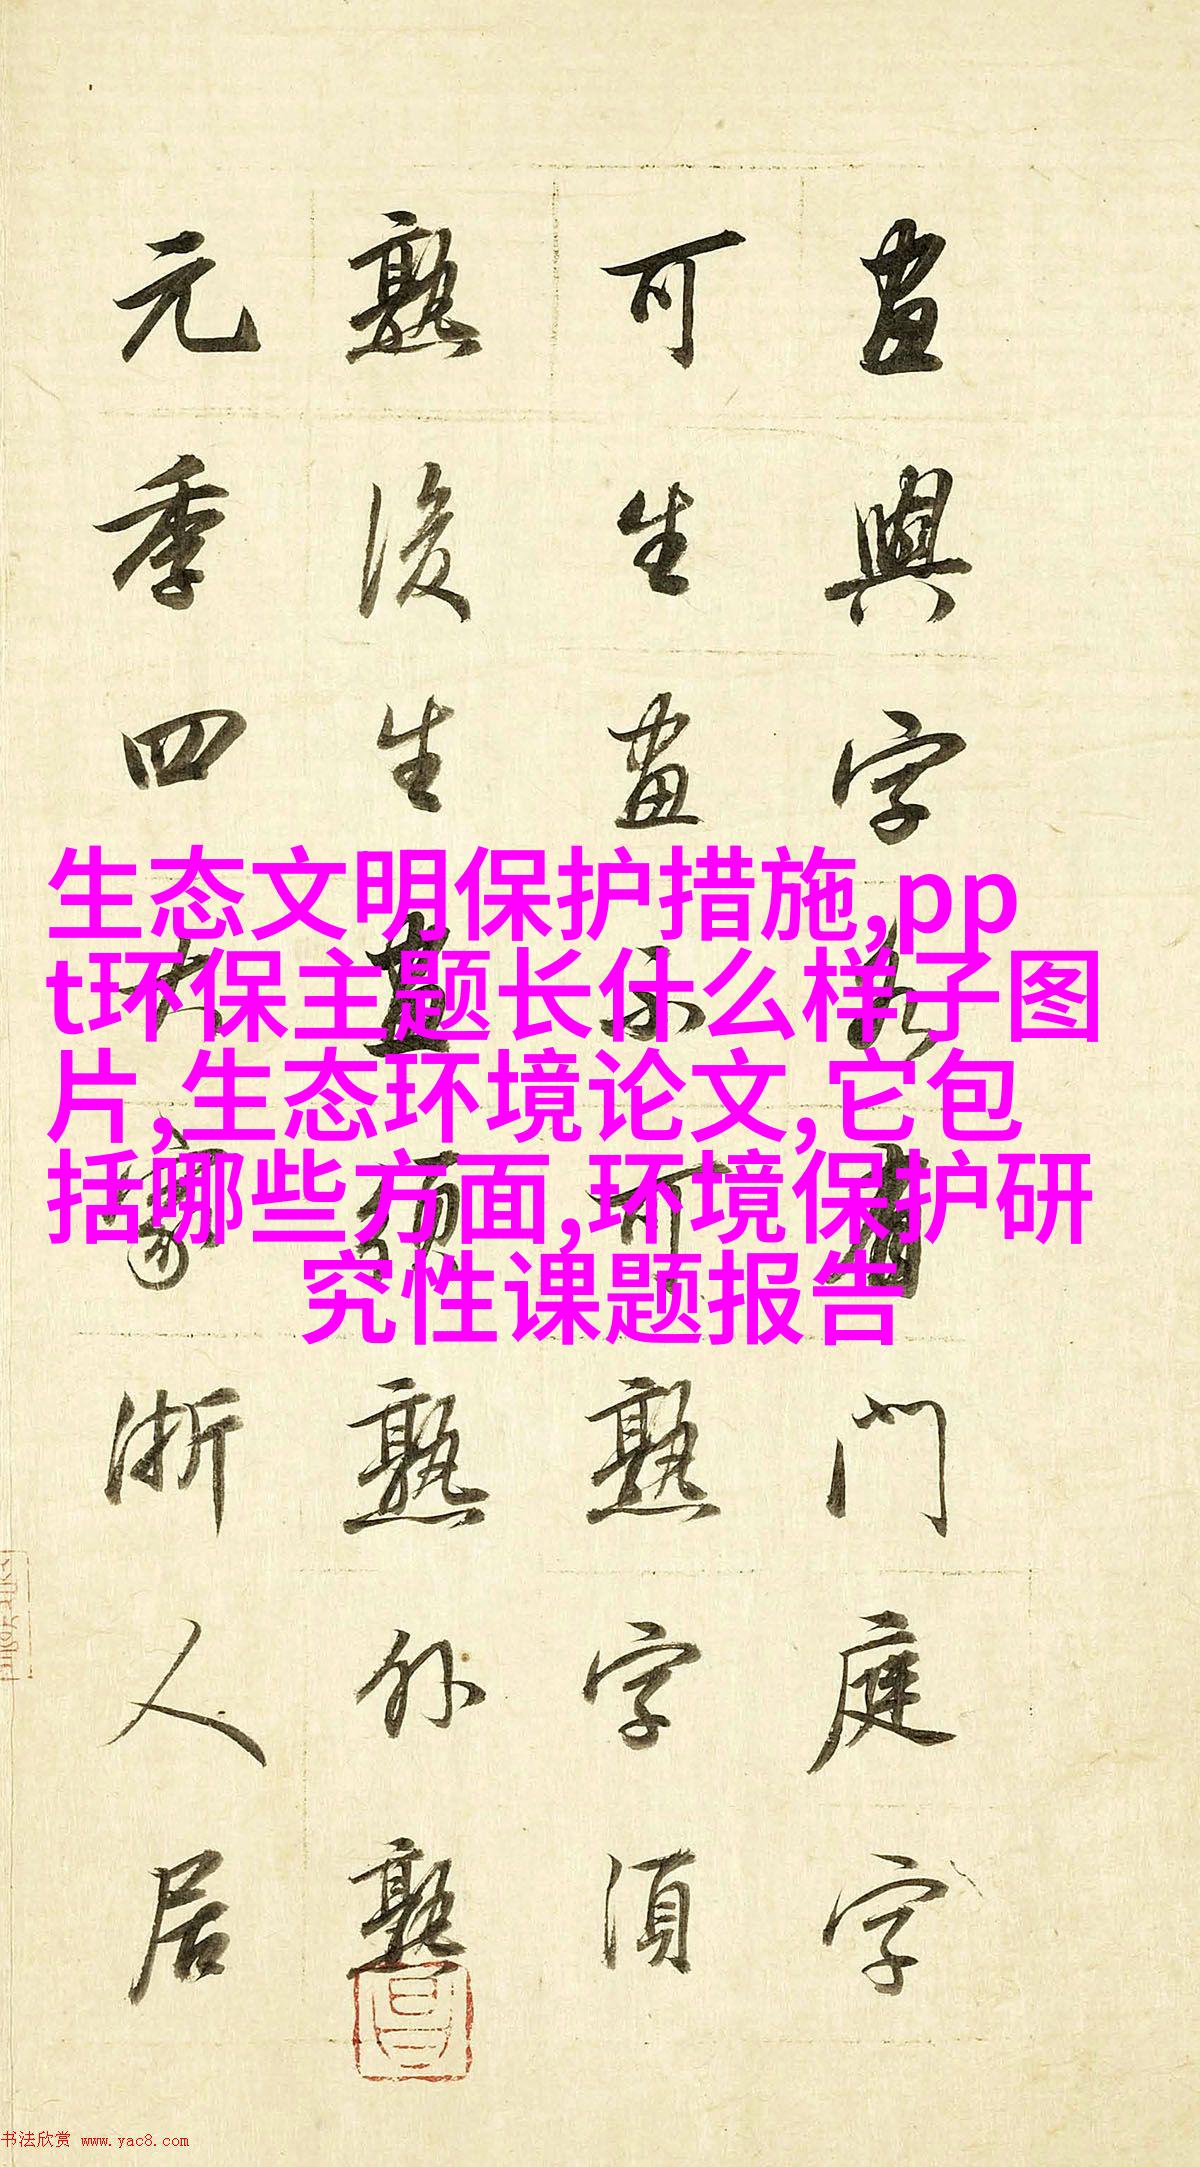 畫與字各有門庭字
可生畫不可熟字須
熟後生畫須熟外熟
元季四大家浙人居
生态文明保护措施,pp
t环保主题长什么样子图
片,生态环境论文,它包
括哪些方面,环境保护研
究性课题报告
书法欣赏 www.yac8.com